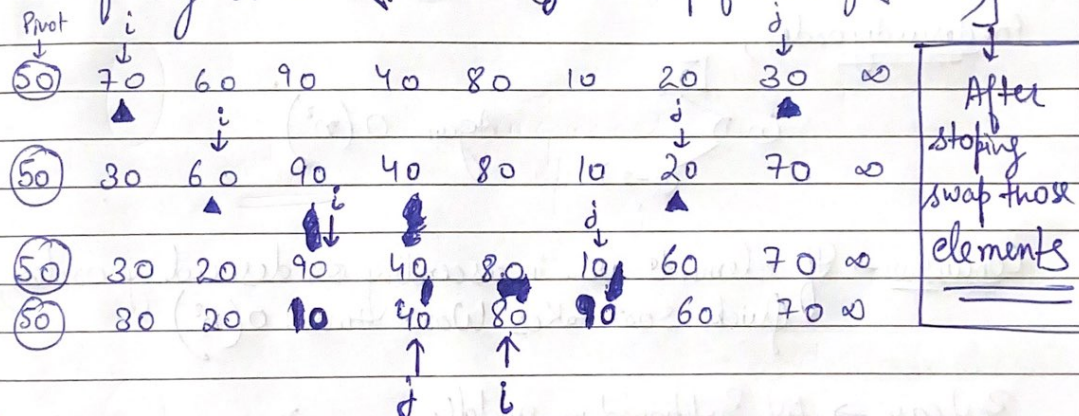 Pivot i j
50 70 60 90 40 80 10 20 30 ∞
i j
50 30 60 90 40 80 10 20 70 ∞
i j
50 30 20 90 40 80 10 60 70 ∞
50 30 20 10 40 80 90 60 70 ∞
j i
After
stoping
swap those
elements